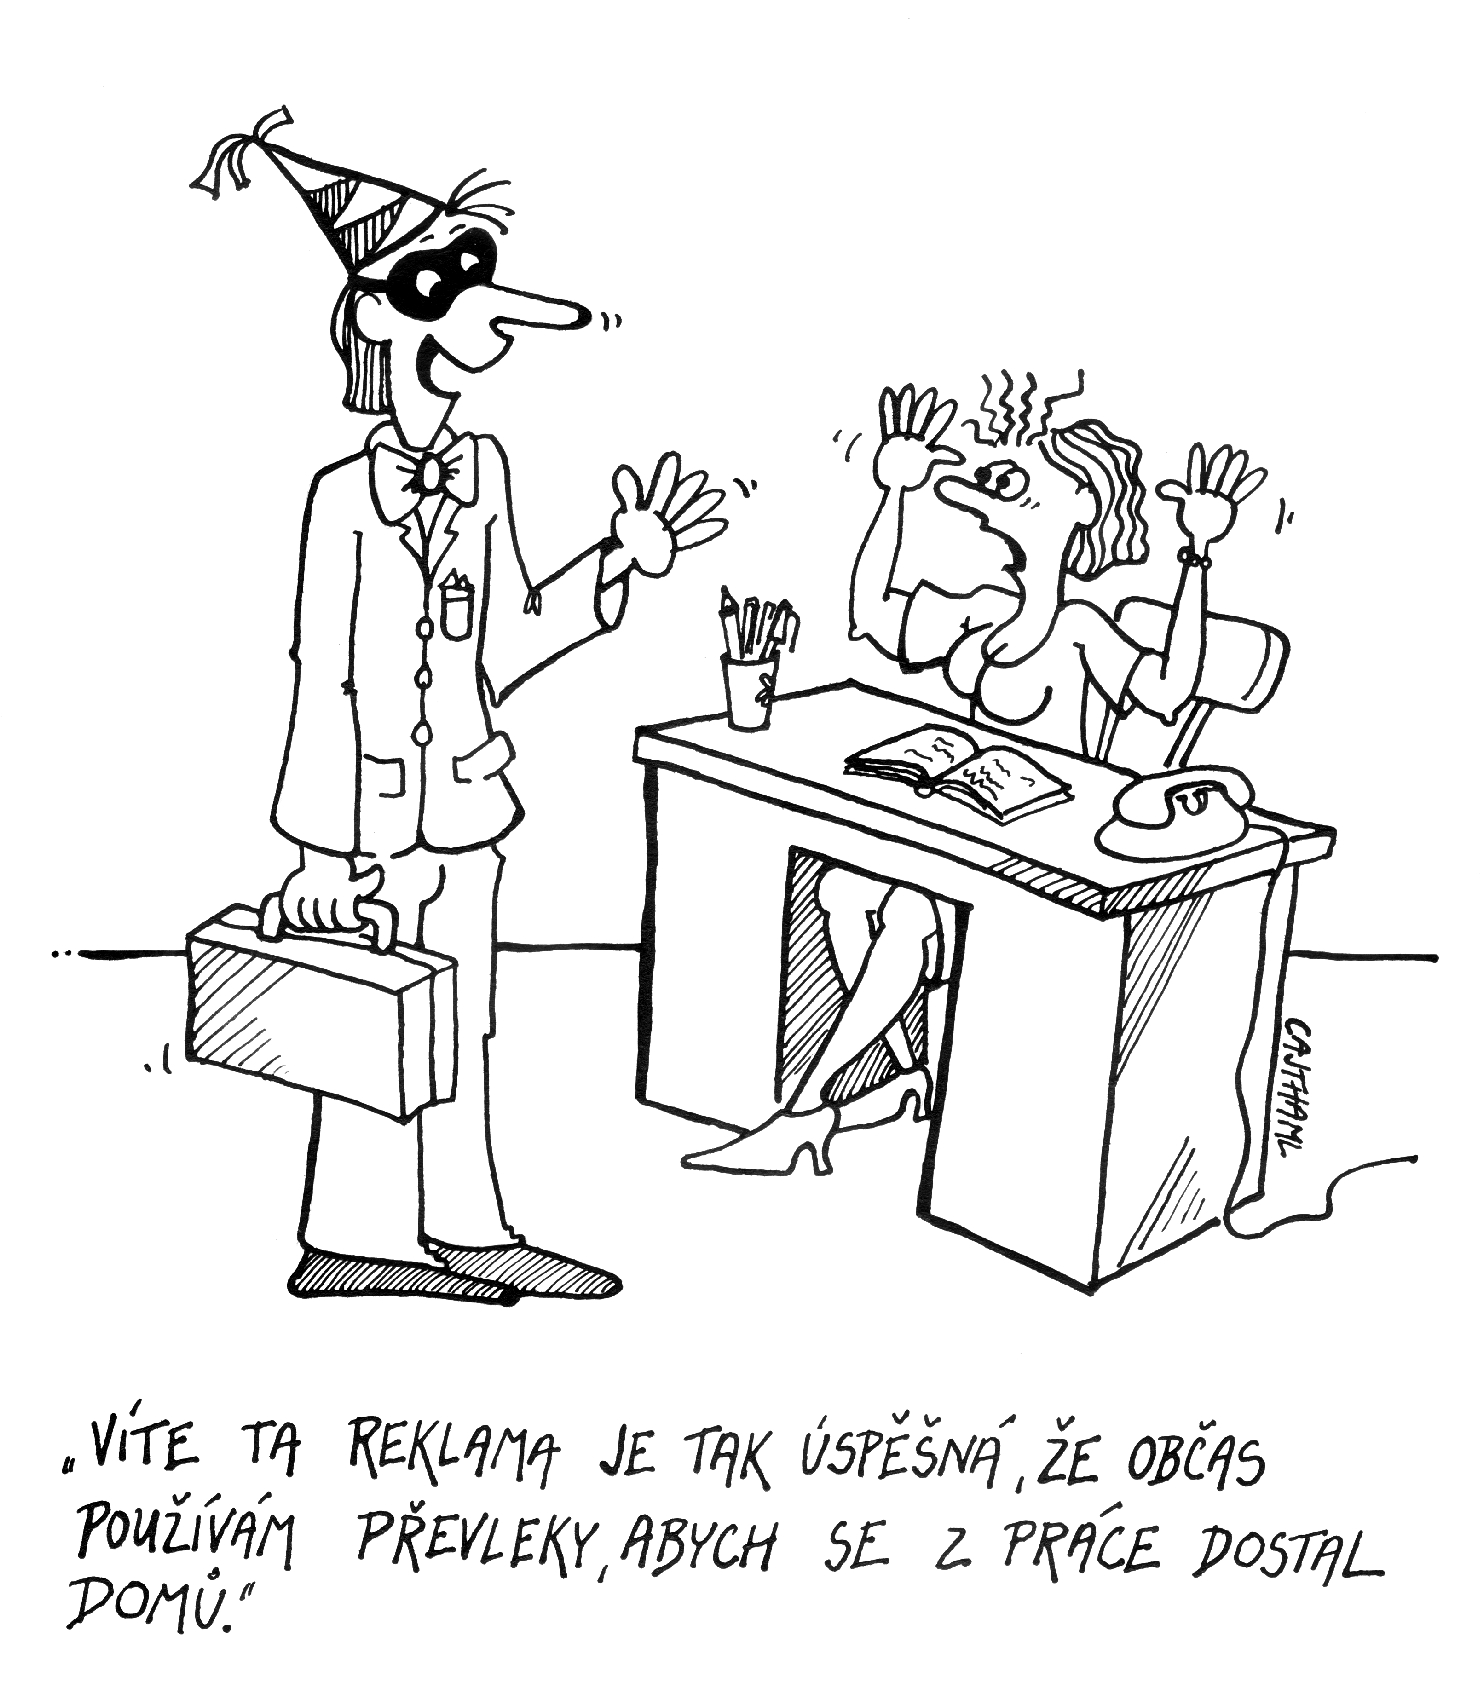 CAJTHAML
„VÍTE TA REKLAMA JE TAK ÚSPĚŠNÁ, ŽE OBČAS
POUŽÍVÁM PŘEVLEKY, ABYCH SE Z PRÁCE DOSTAL
DOMŮ.“